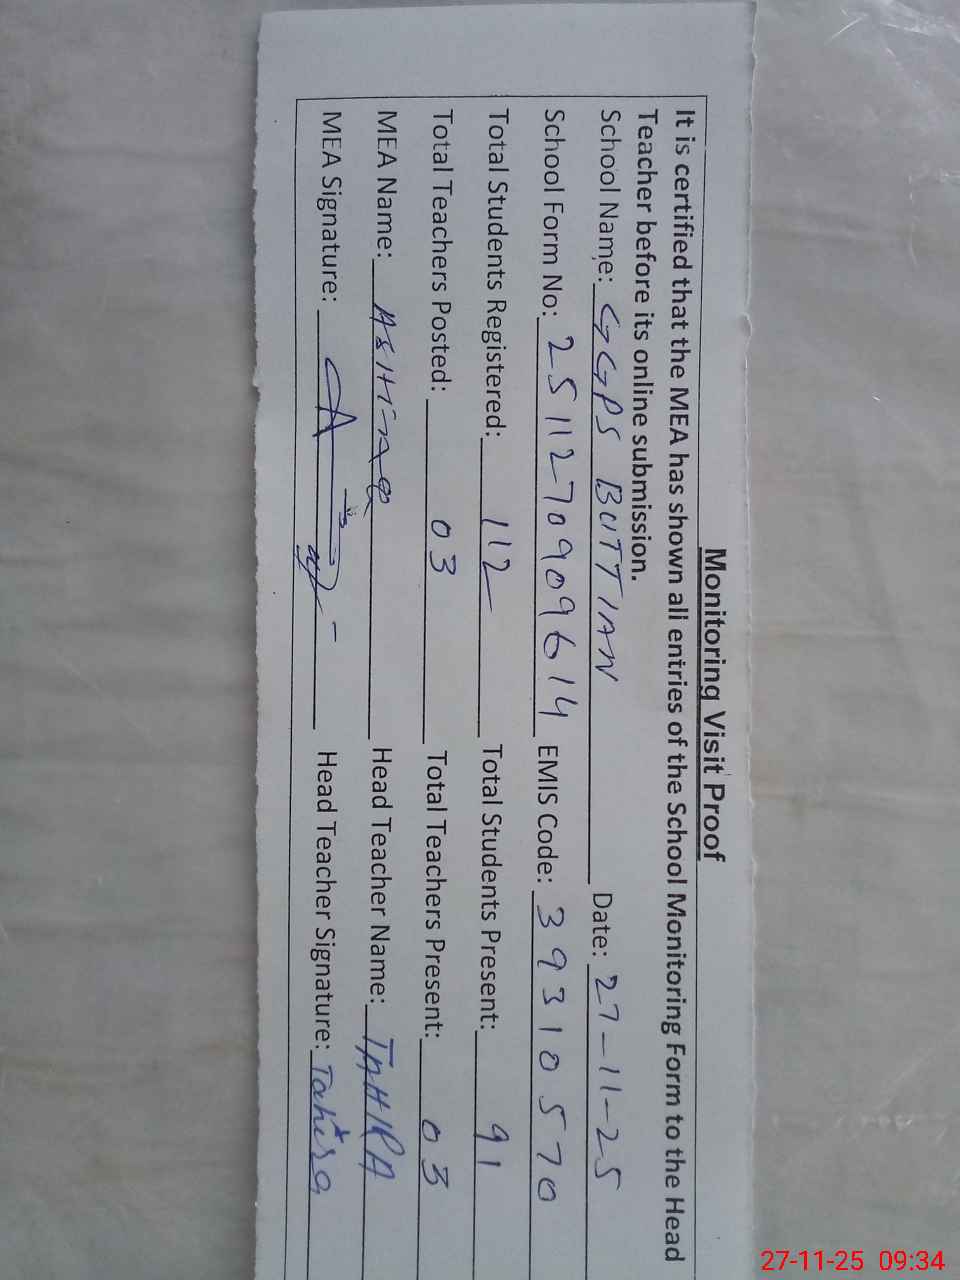 Monitoring Visit Proof
It is certified that the MEA has shown all entries of the School Monitoring Form to the Head
Teacher before its online submission.
School Name: GGPS BUTTIAN Date: 27-11-25
School Form No: 2511270909614 EMIS Code: 39310570
Total Students Registered: 112 Total Students Present: 91
Total Teachers Posted: 03 Total Teachers Present: 03
MEA Name: Head Teacher Name: TAHIRA
MEA Signature: Head Teacher Signature: Tahira
27-11-25 09:34